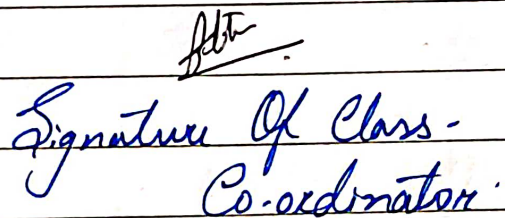 Signature Of Class-
Co-ordinator.